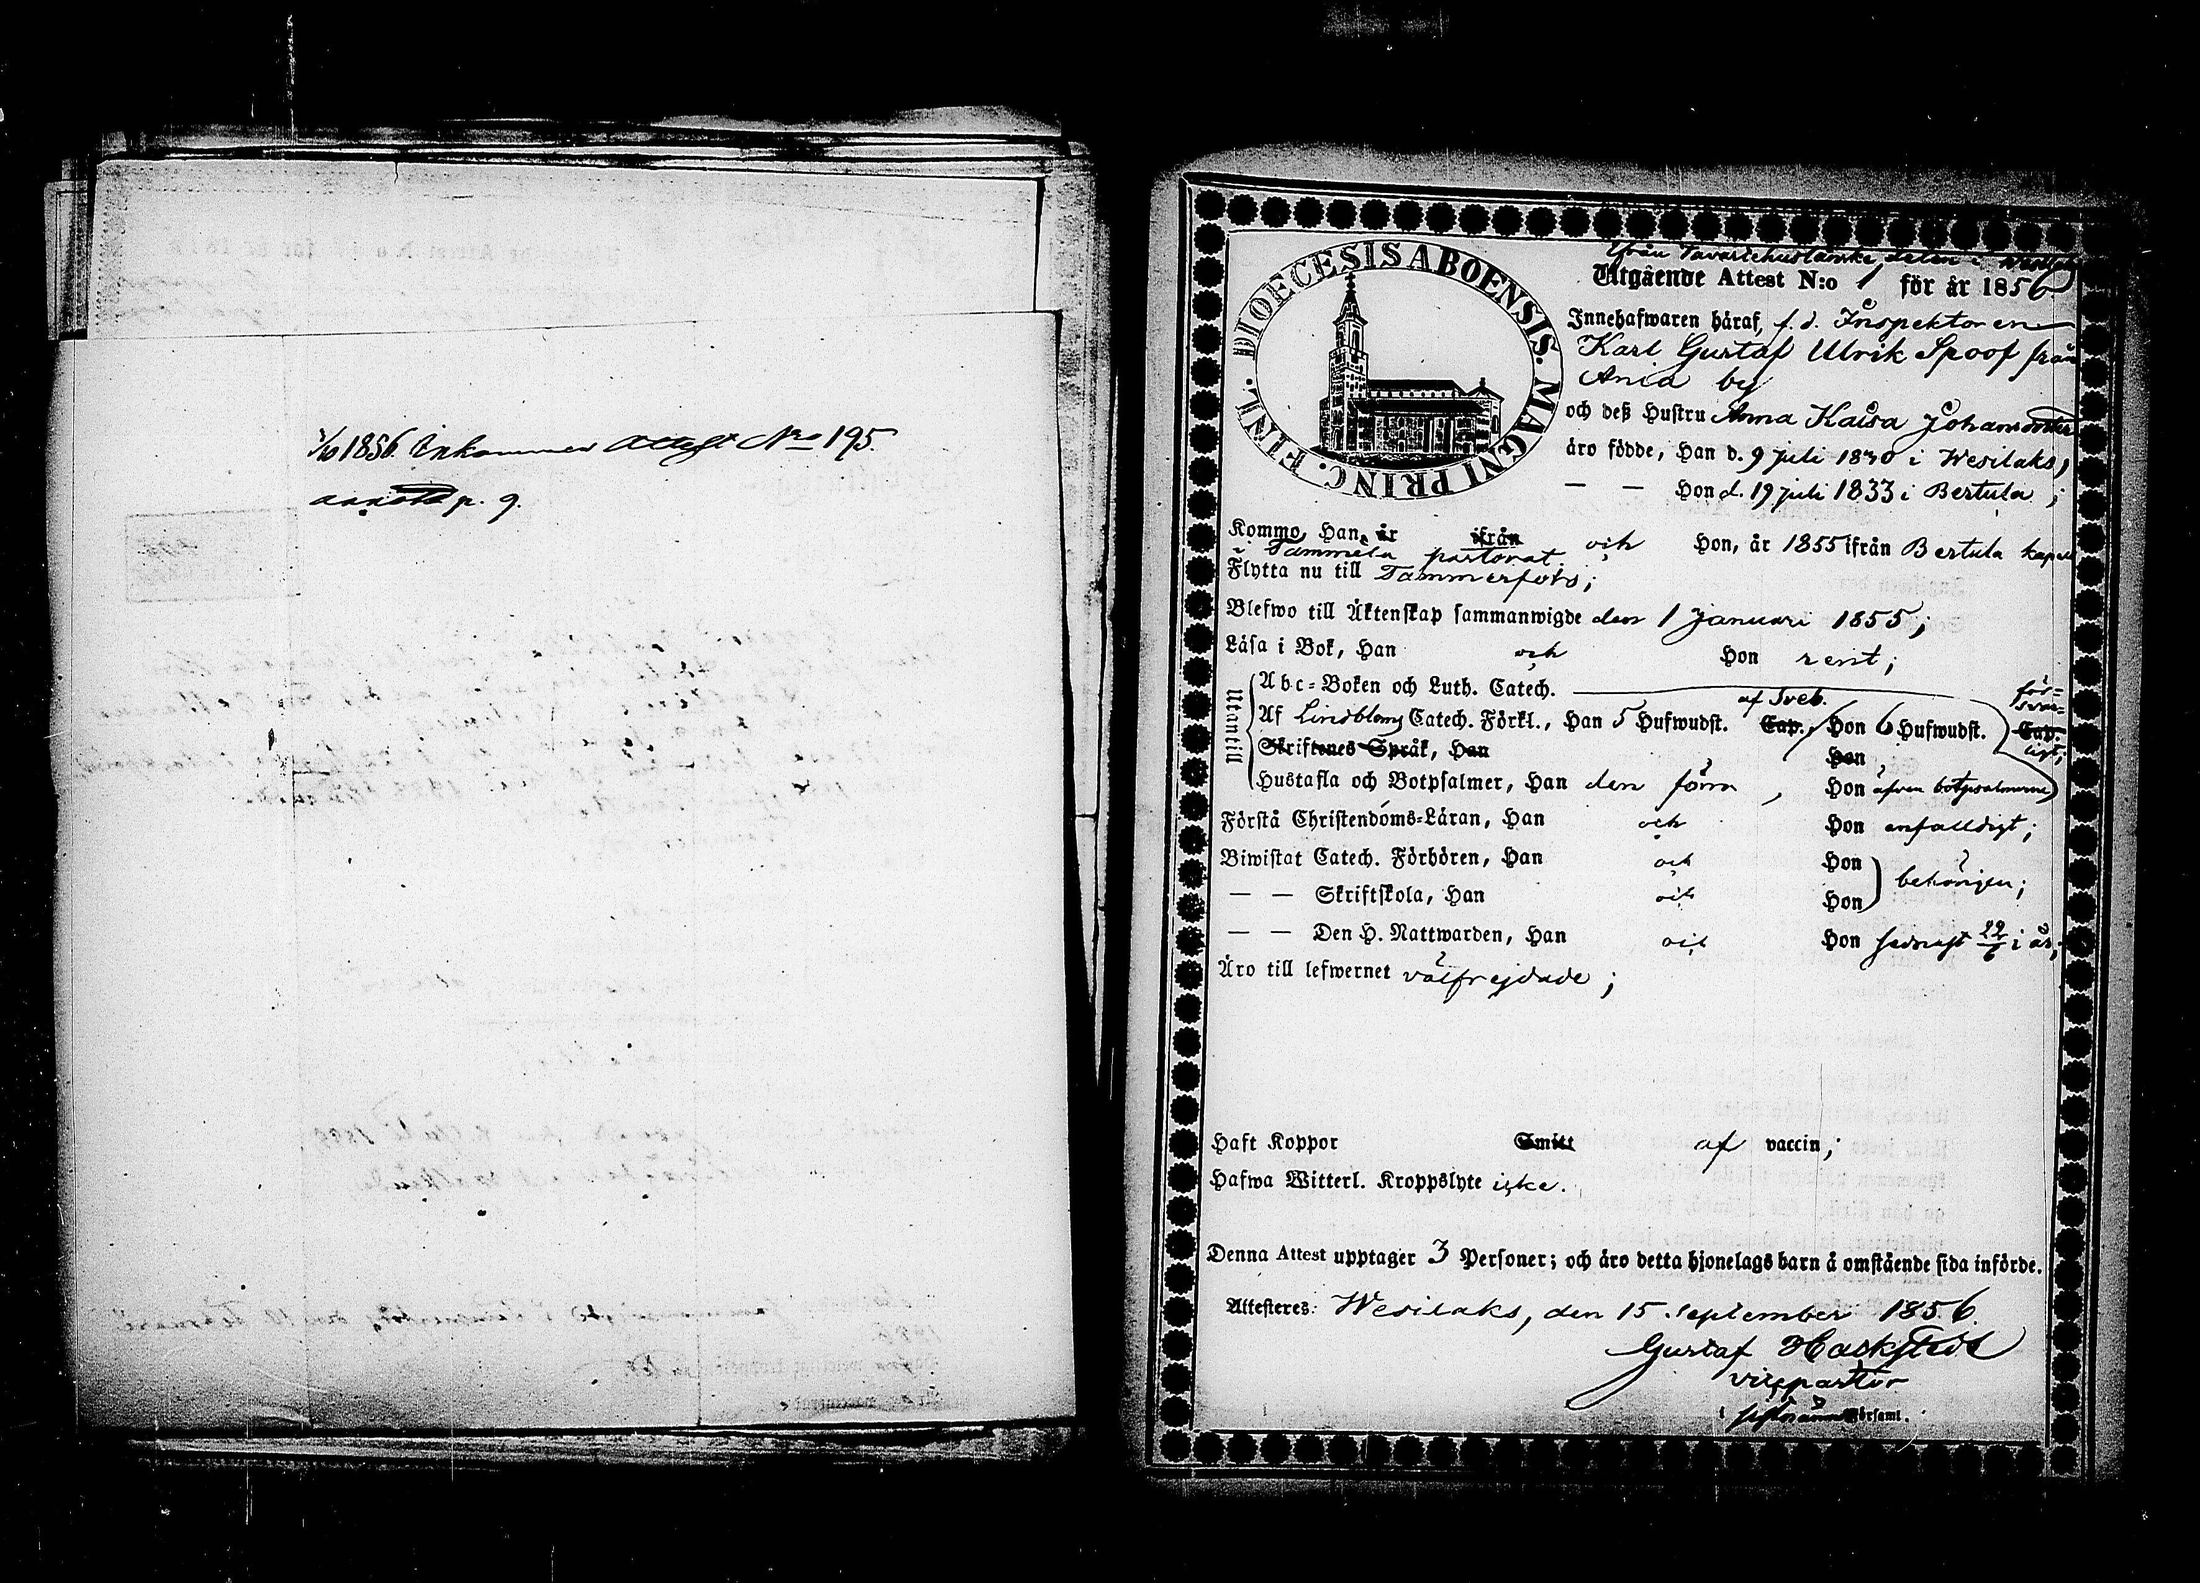 1/10 1856. Inkommen Attest No 195.
annoterad p. 9.
DIOECESIS ABOENSIS. MAGNI PRINC. FINL.
Ifrån Tavastehuslänske delen i
Utgående Attest N:o 1 för år 1856
Innehafwaren häraf, f. d. Inspektoren
Karl Gustaf Ulrik Spoof från
Ania by
och deß Hustru Anna Kaisa Johansdotter
äro födde, Han d. 9 juli 1830 i Wesilaks,
— — Hon d. 19 juli 1833 i Bertula;
Kommo, Han, år ifrån och Hon, år 1855 ifrån Bertula kapell
i Tammela pastorat.
Flytta nu till Tammerfors;
Blefwo till Äktenskap sammanwigde den 1 Januari 1855;
Läsa i Bok, Han och Hon rent;
Utantill
Abc-Boken och Luth. Catech.
af Sveb.
Af Lindbloms Catech. Förkl., Han 5 Hufwudst. Cap., Hon 6 Hufwudst. Cap.
för-
svar-
ligt;
Skriftenes Språk, Han Hon
Hustafla och Botpsalmer, Han den förra, Hon äfven botpsalmerne
Förstå Christendoms-Läran, Han och Hon enfalldigt;
Biwistat Catech. Förhören, Han och Hon
behörigen;
— — Skriftskola, Han och Hon
— — Den H. Nattwarden, Han och Hon sednast 22/6 i år;
Äro till lefwernet välfrejdade;
Haft Koppor Smitt af vaccin;
Hafwa Witterl. Kroppslyte icke.
Denna Attest upptager 3 Personer; och äro detta hjonelags barn å omstående sida införde.
Attesteres: Wesilaks, den 15 September 1856.
Gustaf Hackstedt
vicepastor
i församl.